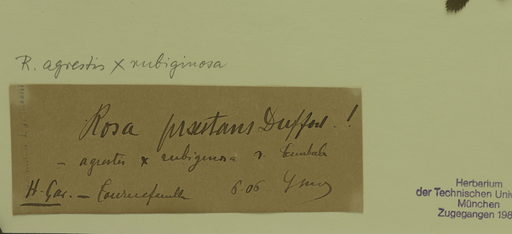 R. agrestis x rubiginosa
Rosa Duffort. !
– agrestis x rubiginosa v.
H. Gar. –
6.06
Herbarium
der Technischen Univ
München
Zugegangen 198